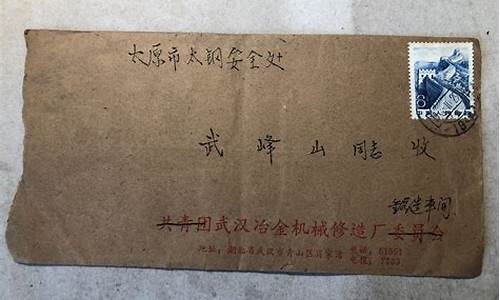 太原市太钢安全处
8
武峰山 同志 收
锻造车间
共青团武汉冶金机械修造厂委员会
地址：湖北省武汉市青山区 电话：61551
电报：7253